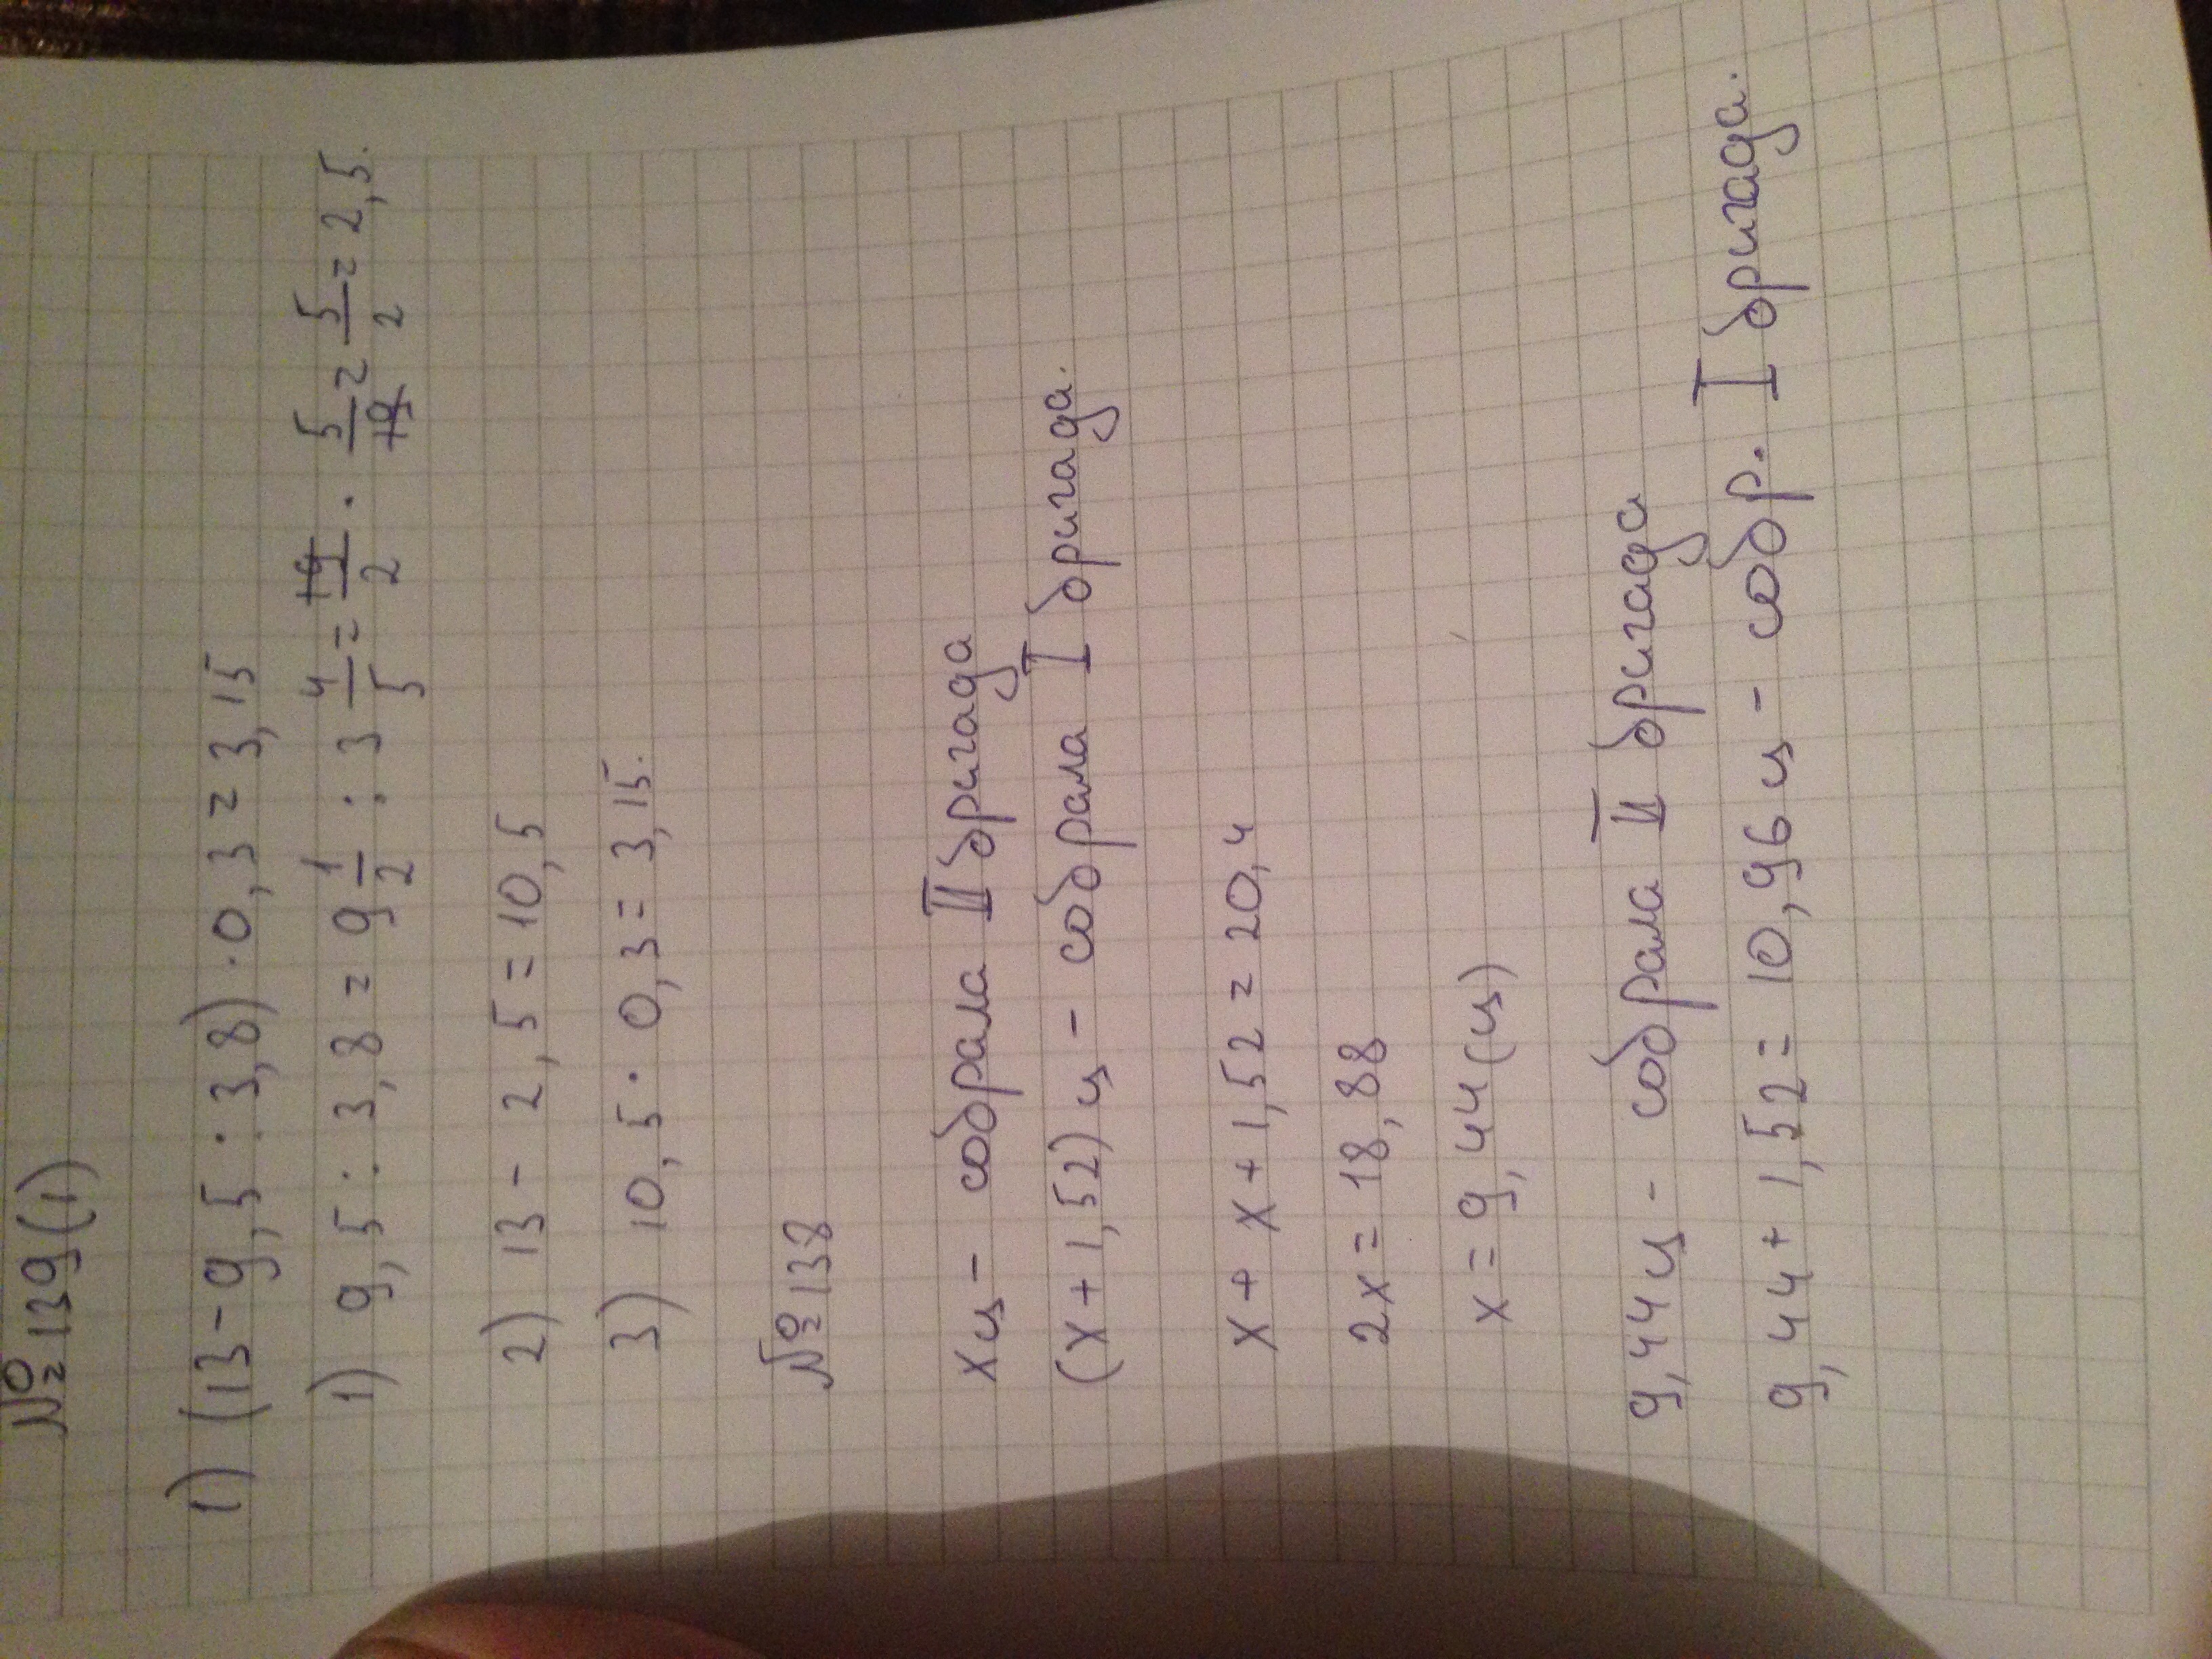 №139(1)
1) (13-9,5:3,8)·0,3=3,15
1) 9,5:3,8=9 1/2 : 3 4/5 = 19/2 · 5/19 = 5/2 = 2,5.
2) 13-2,5=10,5
3) 10,5·0,3=3,15.
№138
xц - собрала II бригада
(x+1,52)ц - собрала I бригада.
x+x+1,52=20,4
2x=18,88
x=9,44(ц)
9,44ц - собрала II бригада
9,44+1,52=10,96ц - собр. I бригада.